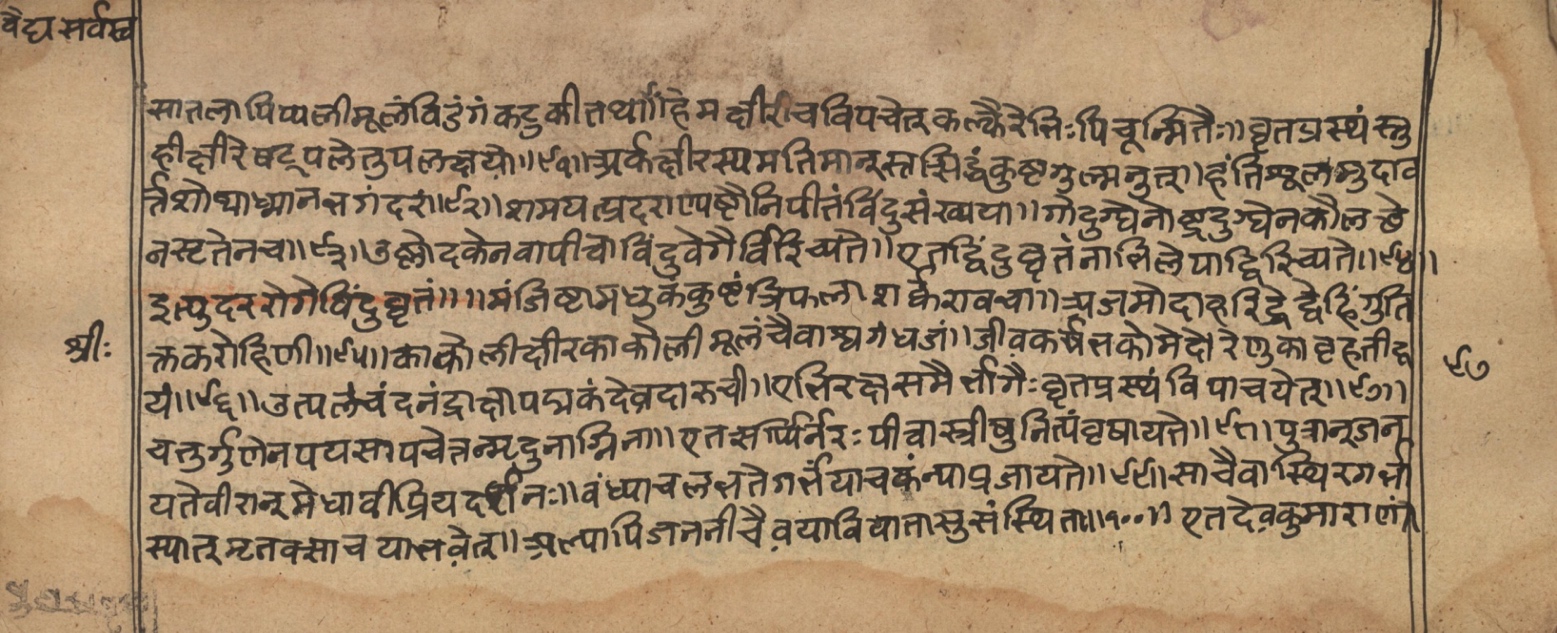 वैद्य सर्वस्व
सातलापिप्पलीमूलंविडंगंकटुकीतथा॥हेमक्षीरीचविपचेत्कल्कैरेभिःपिचून्मितैः॥घृतप्रस्थंस्नु
हीक्षीरेषट्पलेतुपलद्वयो॥९१॥अर्कक्षीरस्यमतिमान्स्तत्सिद्धंकुष्टगुल्मनुत्॥हंतिशूलमुदाव
र्त्तशोथाध्मानभगंदरं॥९२॥शमयत्प्रदराण्यष्टौनिपीतंविंदुसंख्यया॥गोदुग्धेनोष्ट्रदुग्धेनकौलछे
नसृतेनच॥९३॥उष्णोदकेनवापीचोविंदुवेगैर्विरिच्यतै॥एतद्विंदुघृतंनाभिलेपाद्विरिच्यते॥९४॥
इत्युदररोगेविंदुघृतं॥॥मंजिष्टामधुकंकुष्टंत्रिफलाशर्करावचा॥अजमोदाहरिद्रेद्वेहिंगुति
क्तकरोहिणी॥९५॥काकोलीक्षीरकाकौलीमूलंचैवाश्वगंधजं॥जीवकर्षभकोमेदोरेणुकाबृहतीद्व
श्रीः
९७
यं॥९६॥उत्पलंचंदनंद्राक्षापद्मकंदेवदारुची॥एभिरक्षसमैर्भागैःघृतप्रस्थंविपाचयेत्॥९७॥
चतुर्गुणेनपयसापचेत्तन्मृदुनाग्निना॥एतसर्प्पिर्नरःपीवास्त्रीषुनित्यंवृषायते॥९८॥पुत्रान्जन
यतेवीरान्मेधावीप्रियदर्शनः॥वंध्याचलभतेगर्भंयाचकंन्याप्रजायते॥९९॥साचैवास्थिरगर्भा
स्यात्मृतवत्साचयाभवेत्॥अल्पापिजननीचैवयाविपातासुसंस्थिता॥१००॥एतदेवकुमाराणां